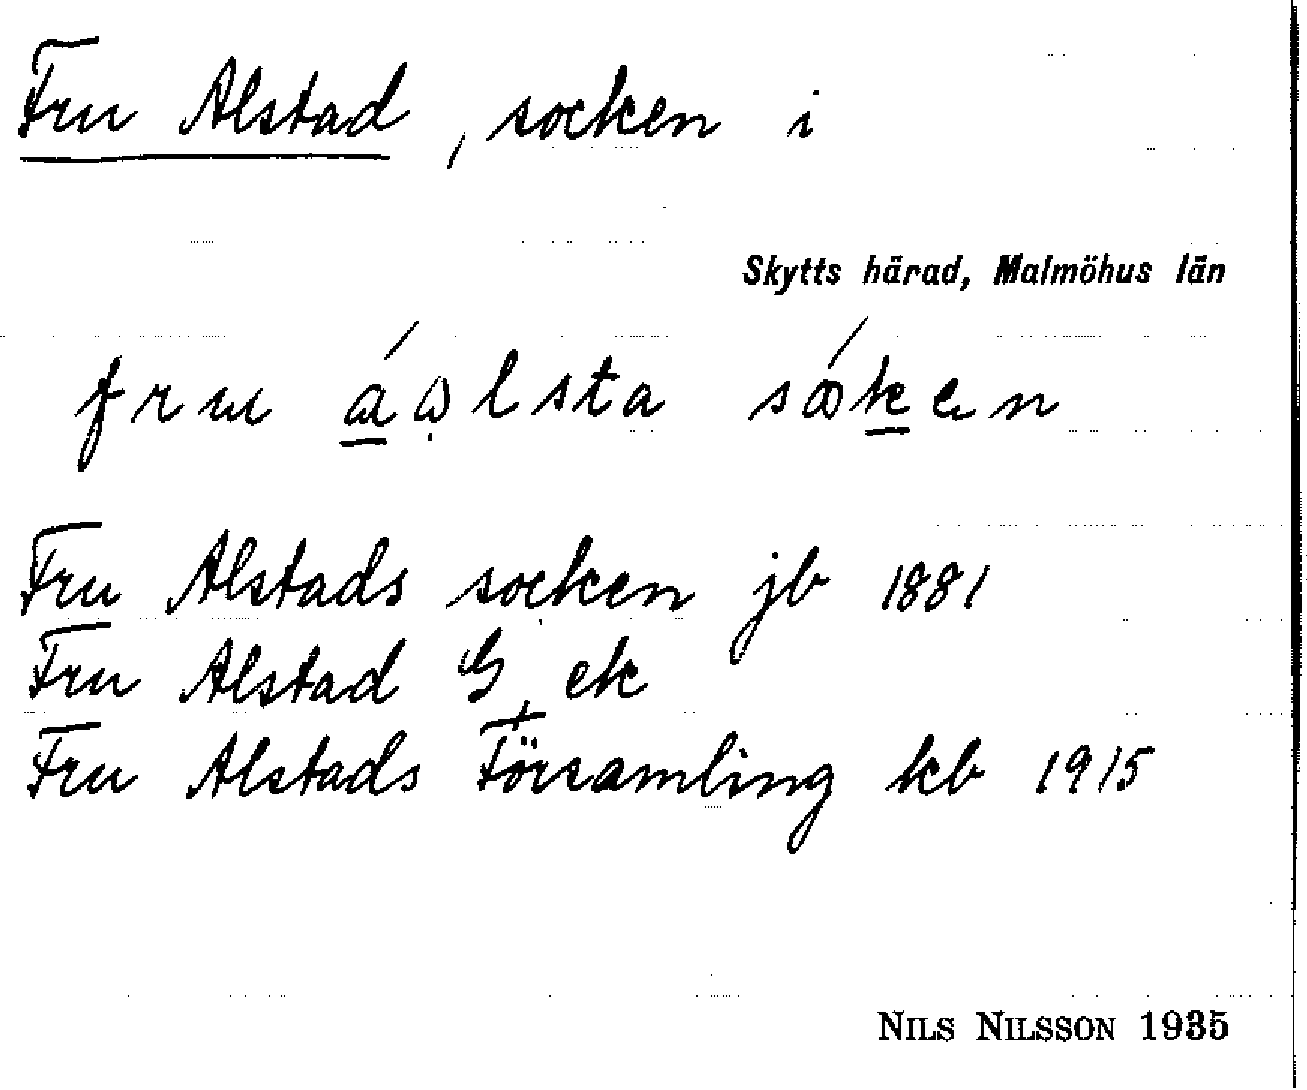 Fru Alstad, socken i
Skytts härad, Malmöhus län
fru áɷlsta sǿken
Fru Alstads socken jb 1881
Fru Alstad G, ek
Fru Alstads Församling kb 1915
NILS NILSSON 1935